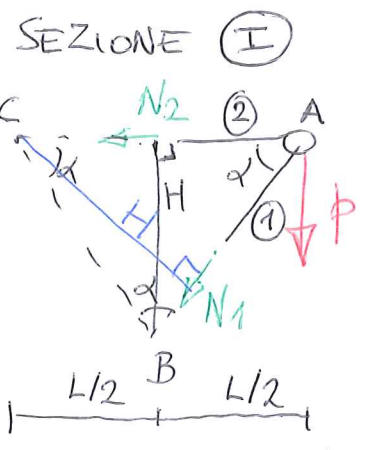 SEZIONE I
C N2 2 A
α H α 1 P
H
α N1
B
L/2 L/2